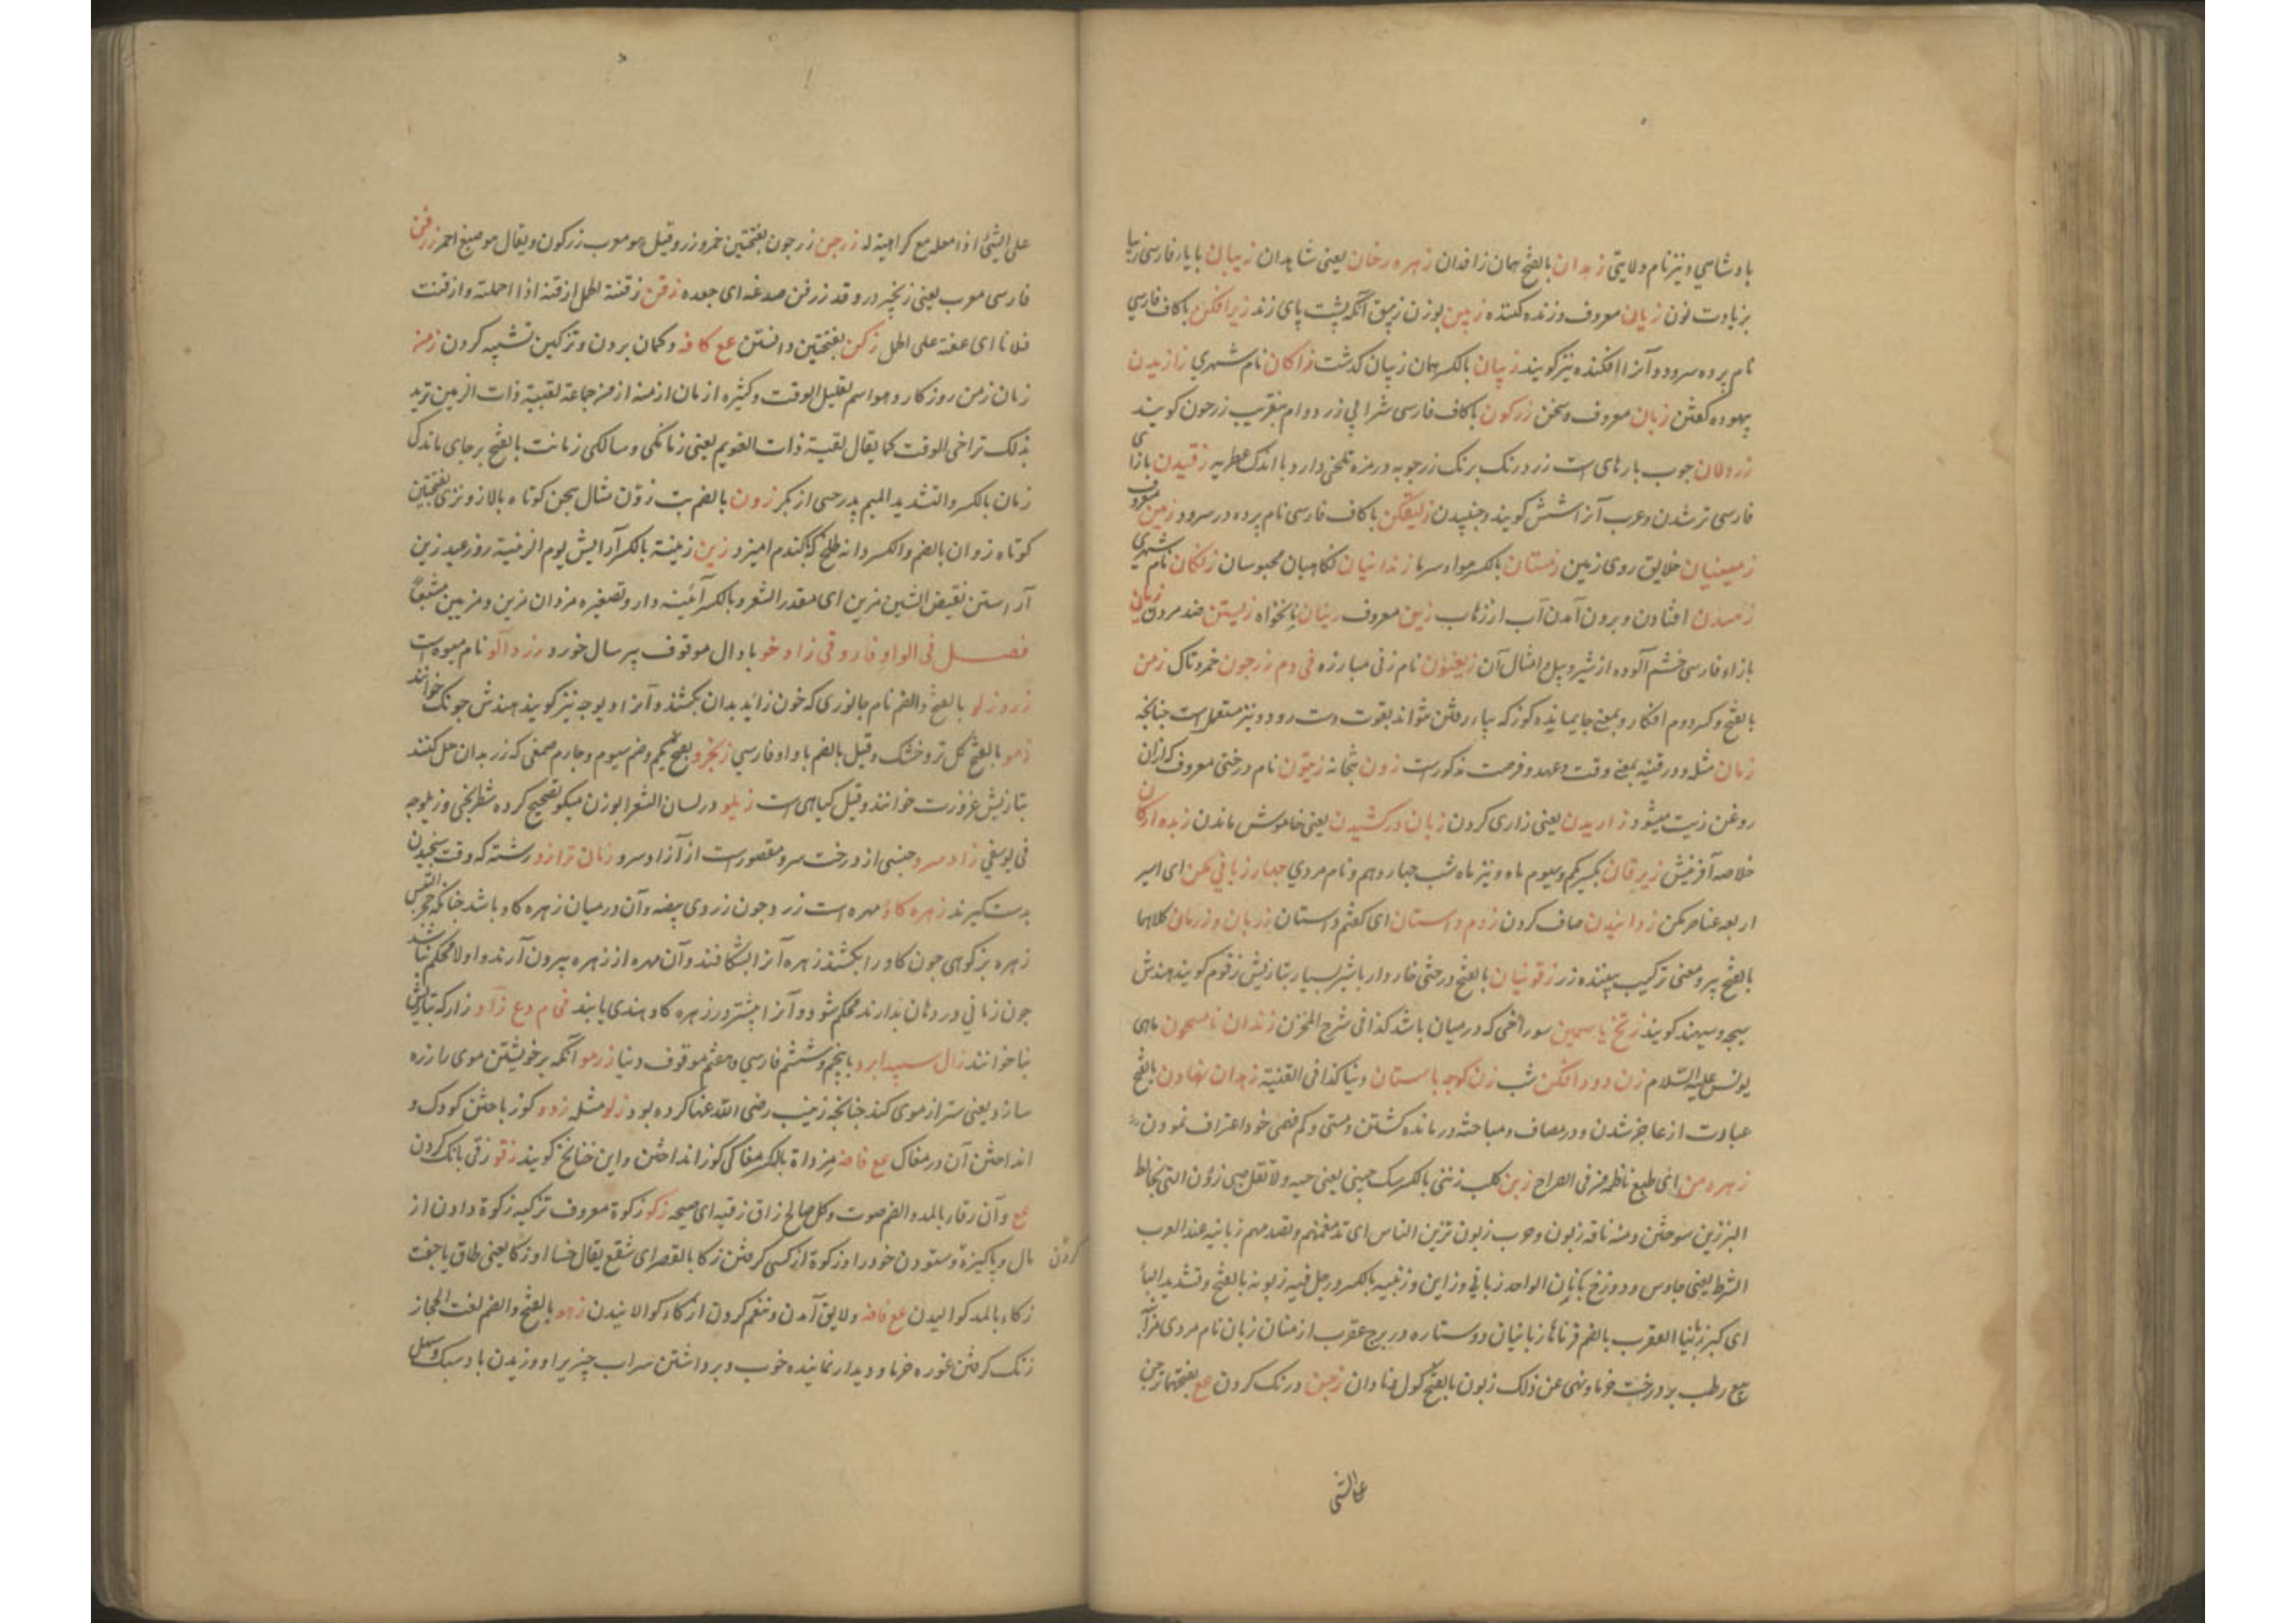 بادشاهی و نیز نام ولایتی زهدان بالفتح همان زاقدان زهره رخان یعنی شاهدان زیبان بایاء فارسی زیبا
بزیادت نون زیان معروف وزنده کننده زیپن بوزن زیبق آنکه پشت پای زند زیرافکن باکاف فارسی
نام پرده سرود و آنرا افکنده نیز کویند زیپان بالکسر همان زیپان کذشت زاکان نام شهری زازیدن
بیهوده کفتن زبان معروف و سخن زرکون باکاف فارسی شرابی زرد و ام بتعریب زرجون کویند
زرولان جوب بارهای است زرد رنک برنک زرجوبه در مزه تلخی دارد با اندک عطریه زقیدن بازای
فارسی تر شدن و عرب آنرا شش کویند و جنبیدن زلیفکن باکاف فارسی نام پرده در سرود زمین معروف
زمینیان خلایق روی زمین زمستان بالکسر هوا و سرما زندانیان نکاهبان محبوسان زنکان نام شهری
زمیدن افتادن و برون آمدن آب از زهاب زین معروف زینان نانخواه زیستن ضد مردن زیان
بازاء فارسی خشم آلوده از شیر و پیل امثال آن زیغنون نام زنی مبارزه فی دم زرجون خمر و تاک زمن
بالفتح و کسر دوم افکار و بمعنی جایمانده کوزکه بپا رفتن نتواند بقوت دست رود و نیز مستعمل است جنانجه
زمان مثله و در قنیه بمعنی وقت و عهد و فرصت مذکور است زون بتخانه زیتون نام درختی معروف که ازان
روغن زیت میشود زاریدن یعنی زاری کردن زبان درکشیدن یعنی خاموش ماندن زبده ارکان
خلاصه آفرینش زبرقان بکسر یکم و سیوم ماه و نیز ماه شب جهاردهم و نام مردی جهار زبانی مکن ای امیر
اربعه عناصر مکن زدانیدن صاف کردن زدم داستان ای کفتم داستان زربان و زرمان کلاهما
بالفتح پیر و معنی ترکیب بیننده زر زقونیان بالفتح درختی خاردار باشیر بسیار بتازیش زقوم کویند هندش
سیجه و سیهند کویند زنخ یاسمین سوراخی که در میان باشد کذا فی شرح المخزن زندان نامسحون ماهی
یونس علیه السلام زن دودافکن شب زن کوجه باستان دنیا کذا فی القنیة زهدان نهادن بالفتح
عبارت از عاجز شدن و در مصاف و مباحثه درمانده کشتن و مستی و کم فهمی خود اعتراف نمودن
زهره من ای طبع ناظمه من فی الصراح زبن کلب زئنی بالکسر سک جینی یعنی جیه ولا تقل صینی زؤن التی یخالط
البر زبن سوختن و منه ناقه زبون و حرب زبون تزبن الناس ای تدفعهم و تصدمهم زبانیه عند العرب
الشرط یعنی جاوس و دوزخ بانان الواحد زبانی و زابن و زبنیه بالکسر و رجل فیه زبونه بالفتح و تشدید الباء
ای کبر زبانیا العقرب بالضم قرناها زبانیان دو ستاره در برج عقرب از منان زبان نام مردی مزابنه
بیع رطب بر درخت خرما و نهی عن ذلک زبون بالفتح کول و نادان زجن درنک کردن عع بفتحتها زجن
علی الشئ
علی الشئ اذا فعله مع کراهیة له زرجن زرجون بفتحتین خمر و زر و قیل هو معرب زرکون و یقال هو صبغ احمر زرفن
فارسی معرب یعنی زنجیر در و قد زرفن صدغه ای جعده زقن زقنة الحمل ازقنه اذا احملته و ازقنت
فلانا ای اعنته علی الحمل زکن بفتحتین دانستن عع کافه و کمان بردن و تزکین تشبیه کردن زمن
زمان زمن روزکار و هو اسم لقلیل الوقت و کثیره ازمان ازمنه ازمن جماعة لقیته ذات الزمین ترید
بذلک تراخی الوقت کما یقال لقیته ذات العویم یعنی زمانکی و سالکی زمانت بالفتح بر جای ماندکی
زمان بالکسر والتشدید المیم پدر حیی از بکر زون بالضم بت زوّن مثال هجن کوتاه بالا زونزی بفتحتین
کوتاه زوان بالضم والکسر دانه طلخ که باکندم امیزد زین زینة بالکسر آرایش یوم الزینة روز عید زین
آراستن نقیض الشین مزین ای مقدر الشعر و بالکسر آئینه دار و تصغیره مزدان مزین و مزیین مشبعاً
فصل فی الواو فاروقی زاد خو بادال موقوف پیر سال خورد زردآلو نام میوه است
زروزلو بالفتح والضم نام جانوری که خون زاید بدان بکشند و آنرا دیوجه نیز کویند هندش جونک خوانند
زمو بالفتح کل تر و خشک و قیل بالضم با واو فارسی زنجرو بفتح یکم و ضم سیوم و جارم صمغی که زر بدان حل کنند
بتازیش عنزروت خوانند و قیل کیاهی است زیلو در لسان الشعرا بوزن میکو تصحیح کرده شطرنجی و زیلوجه
فی یوسفی زادسرو جنسی از درخت سرو مقصور است از آزاد سرو زبان ترازو رشته که وقت سنجیدن
بدست کیرند زهره کاو مهره است زرد جون زردی بیضه و آن در میان زهره کاو باشد جنانکه حجر التیس
زهره بز کوهی جون کاو را بکشند زهره آنرا بشکافند و آن مهره از زهره بیرون آرند و اولا محکم نباشد
جون زمانی در دهان بدارند محکم شود و آنرا بیشتر در زهره کاو هندی یابند فی م دع زآو زار که بتازیش
بنا خوانند زال سپید ابرو با پنجم و ششم فارسی و هفتم موقوف دنیا زرمو آنکه بر خویشتن موی را زره
سازد یعنی ستر از موی کند جنانجه زینب رضی الله عنها کرده بود زلو مثله زدو کوز باختن کودک و
انداختن آن در مغاک عع فامنه مزداة بالکسر مغاکی کوز انداختن و این خنانخ کویند زقو زقی بانک کردن
عع و آن زقار بالمد والضم صوت و کل صالح زاق زقیه ای صیحه زکو زکوة معروف تزکیه زکوة دادن از
مال و پاکیزه و ستودن خود را و زکوة از کسی کرفتن زکا بالقصر ای شفع یقال خسا او زکا یعنی طاق یا جفت
کردن
زکاء بالمد کوالیدن عع فامنه و لایق آمدن و تنعم کردن ازکاء کوالانیدن زهو بالفتح والضم لغت الحجاز
زنک کرفتن غوره خرما و دیدار نماینده خوب و برداشتن سراب چیزیرا و وزیدن باد سبک و سهل